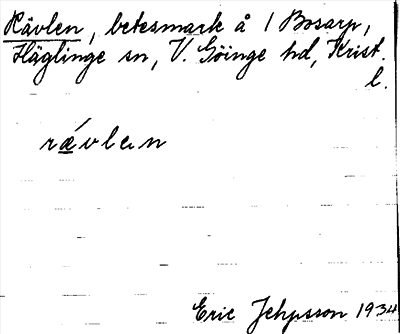 Rävlen, betesmark å 1 Bosarp,
Häglinge sn, V. Göinge hd, Krist.
l.
rævlen
Eric Jepsson 1934